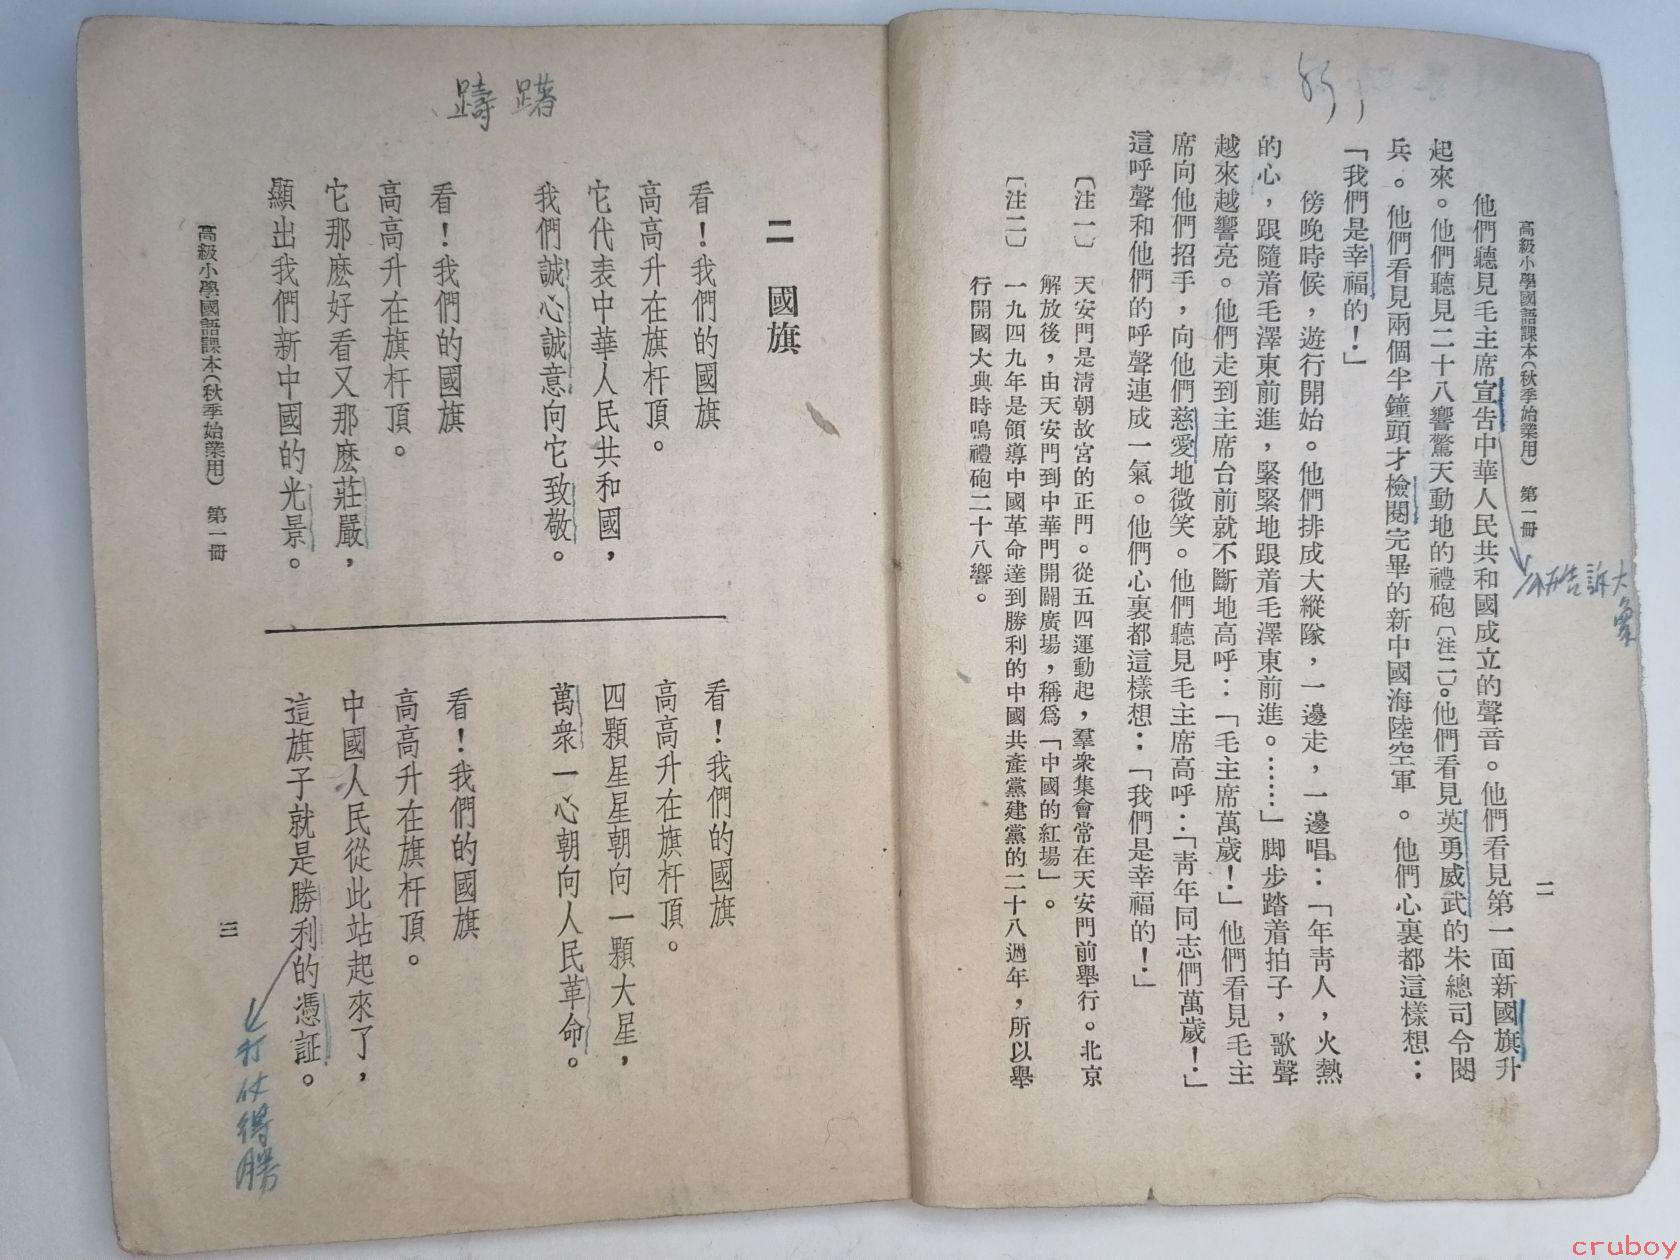 高級小學國語課本(秋季始業用) 第一冊
二
他們聽見毛主席宣告中華人民共和國成立的聲音。他們看見第一面新國旗升
起來。他們聽見二十八響驚天動地的禮砲〔注二〕。他們看見英勇威武的朱總司令閱
兵。他們看見兩個半鐘頭才檢閱完畢的新中國海陸空軍。他們心裏都這樣想：
「我們是幸福的！」
傍晚時候，遊行開始。他們排成大縱隊，一邊走，一邊唱：「年青人，火熱
的心，跟隨着毛澤東前進，緊緊地跟着毛澤東前進。……」脚步踏着拍子，歌聲
越來越響亮。他們走到主席台前就不斷地高呼：「毛主席萬歲！」他們看見毛主
席向他們招手，向他們慈愛地微笑。他們聽見毛主席高呼：「青年同志們萬歲！」
這呼聲和他們的呼聲連成一氣。他們心裏都這樣想：「我們是幸福的！」
〔注一〕 天安門是清朝故宮的正門。從五四運動起，羣衆集會常在天安門前舉行。北京
解放後，由天安門到中華門開闢廣場，稱爲「中國的紅場」。
〔注二〕 一九四九年是領導中國革命達到勝利的中國共產黨建黨的二十八週年，所以舉
行開國大典時鳴禮砲二十八響。
告訴大
衆
躊躇
二 國旗
看！我們的國旗
高高升在旗杆頂。
它代表中華人民共和國，
我們誠心誠意向它致敬。
看！我們的國旗
高高升在旗杆頂。
它那麽好看又那麽莊嚴，
顯出我們新中國的光景。
看！我們的國旗
高高升在旗杆頂。
四顆星星朝向一顆大星，
萬衆一心朝向人民革命。
看！我們的國旗
高高升在旗杆頂。
中國人民從此站起來了，
這旗子就是勝利的憑証。
打仗得勝
高級小學國語課本(秋季始業用) 第一冊
三
cruboy